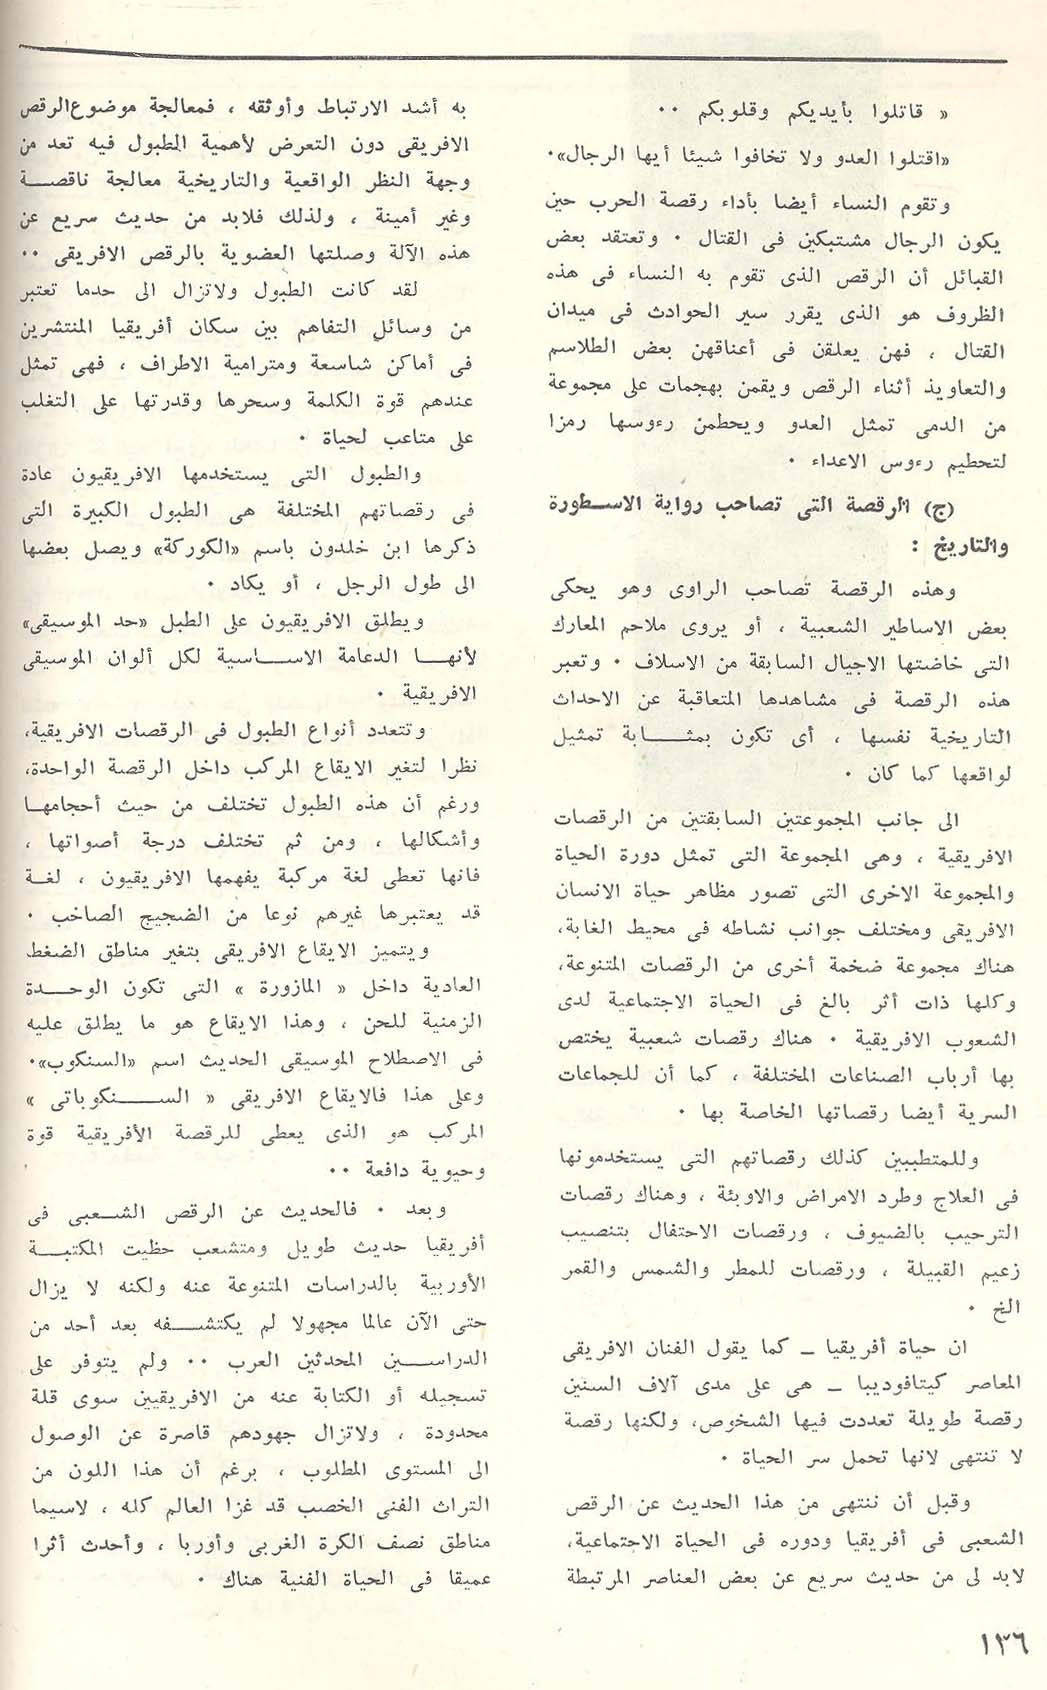 « قاتلوا بأيديكم وقلوبكم ٠٠
«اقتلوا العدو ولا تخافوا شيئا أيها الرجال»٠
وتقوم النساء أيضا بأداء رقصة الحرب حين
يكون الرجال مشتبكين فى القتال ٠ وتعتقد بعض
القبائل أن الرقص الذى تقوم به النساء فى هذه
الظروف هو الذى يقرر سير الحوادث فى ميدان
القتال ، فهن يعلقن فى أعناقهن بعض الطلاسم
والتعاويذ أثناء الرقص ويقمن بهجمات على مجموعة
من الدمى تمثل العدو ويحطمن رءوسها رمزا
لتحطيم رءوس الاعداء ٠
(ج) الرقصة التى تصاحب رواية الاسطورة
والتاريخ :
وهذه الرقصة تصاحب الراوى وهو يحكى
بعض الاساطير الشعبية ، أو يروى ملاحم المعارك
التى خاضتها الاجيال السابقة من الاسلاف ٠ وتعبر
هذه الرقصة فى مشاهدها المتعاقبة عن الاحداث
التاريخية نفسها ، أى تكون بمثابة تمثيل
لواقعها كما كان ٠
الى جانب المجموعتين السابقتين من الرقصات
الافريقية ، وهى المجموعة التى تمثل دورة الحياة
والمجموعة الاخرى التى تصور مظاهر حياة الانسان
الافريقى ومختلف جوانب نشاطه فى محيط الغابة،
هناك مجموعة ضخمة أخرى من الرقصات المتنوعة،
وكلها ذات أثر بالغ فى الحياة الاجتماعية لدى
الشعوب الافريقية ٠ هناك رقصات شعبية يختص
بها أرباب الصناعات المختلفة ، كما أن للجماعات
السرية أيضا رقصاتها الخاصة بها ٠
وللمتطببين كذلك رقصاتهم التى يستخدمونها
فى العلاج وطرد الامراض والاوبئة ، وهناك رقصات
الترحيب بالضيوف ، ورقصات الاحتفال بتنصيب
زعيم القبيلة ، ورقصات للمطر والشمس والقمر
الخ ٠
ان حياة أفريقيا ــ كما يقول الفنان الافريقى
المعاصر كيتافوديبا ــ هى على مدى آلاف السنين
رقصة طويلة تعددت فيها الشخوص، ولكنها رقصة
لا تنتهى لانها تحمل سر الحياة ٠
وقبل أن ننتهى من هذا الحديث عن الرقص
الشعبى فى أفريقيا ودوره فى الحياة الاجتماعية،
لابد لى من حديث سريع عن بعض العناصر المرتبطة
به أشد الارتباط وأوثقه ، فمعالجة موضوع الرقص
الافريقى دون التعرض لأهمية الطبول فيه تعد من
وجهة النظر الواقعية والتاريخية معالجة ناقصة
وغير أمينة ، ولذلك فلابد من حديث سريع عن
هذه الآلة وصلتها العضوية بالرقص الافريقى ٠٠
لقد كانت الطبول ولاتزال الى حدما تعتبر
من وسائل التفاهم بين سكان أفريقيا المنتشرين
فى أماكن شاسعة ومترامية الاطراف ، فهى تمثل
عندهم قوة الكلمة وسحرها وقدرتها على التغلب
على متاعب لحياة ٠
والطبول التى يستخدمها الافريقيون عادة
فى رقصاتهم المختلفة هى الطبول الكبيرة التى
ذكرها ابن خلدون باسم «الكوركة» ويصل بعضها
الى طول الرجل ، أو يكاد ٠
ويطلق الافريقيون على الطبل «حد الموسيقى»
لأنها الدعامة الاساسية لكل ألوان الموسيقى
الافريقية ٠
وتتعدد أنواع الطبول فى الرقصات الافريقية،
نظرا لتغير الايقاع المركب داخل الرقصة الواحدة،
ورغم أن هذه الطبول تختلف من حيث أحجامها
وأشكالها ، ومن ثم تختلف درجة أصواتها ،
فانها تعطى لغة مركبة يفهمها الافريقيون ، لغة
قد يعتبرها غيرهم نوعا من الضجيج الصاخب ٠
ويتميز الايقاع الافريقى بتغير مناطق الضغط
العادية داخل « المازورة » التى تكون الوحدة
الزمنية للحن ، وهذا الايقاع هو ما يطلق عليه
فى الاصطلاح الموسيقى الحديث اسم «السنكوب»٠
وعلى هذا فالايقاع الافريقى « السنكوباتى »
المركب هو الذى يعطى للرقصة الأفريقية قوة
وحيوية دافعة ٠٠
وبعد ٠ فالحديث عن الرقص الشعبى فى
أفريقيا حديث طويل ومتشعب حظيت المكتبة
الأوربية بالدراسات المتنوعة عنه ولكنه لا يزال
حتى الآن عالما مجهولا لم يكتشفه بعد أحد من
الدراسين المحدثين العرب ٠٠ ولم يتوفر على
تسجيله أو الكتابة عنه من الافريقيين سوى قلة
محدودة ، ولاتزال جهودهم قاصرة عن الوصول
الى المستوى المطلوب ، برغم أن هذا اللون من
التراث الفنى الخصب قد غزا العالم كله ، لاسيما
مناطق نصف الكرة الغربى وأوربا ، وأحدث أثرا
عميقا فى الحياة الفنية هناك ٠
١٣٦